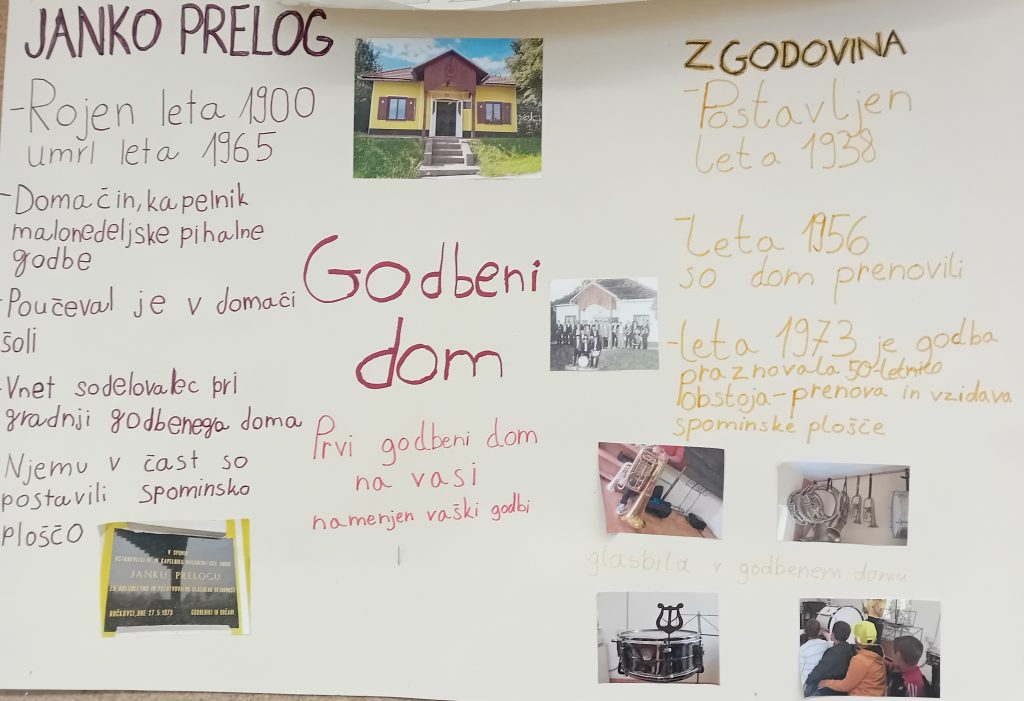 JANKO PRELOG
-Rojen leta 1900
umrl leta 1965
-Domačin, kapelnik
malonedeljske pihalne
godbe
-Poučeval je v domači
šoli
-Vnet sodelovalec pri
gradnji godbenega doma
Njemu v čast so
postavili spominsko
ploščo
V SPOMIN
JANKU PRELOGU
BUČKOVCI, DNE 27.5.1973 GODBENIKI IN OBČANI
Godbeni
dom
Prvi godbeni dom
na vasi
namenjen vaški godbi
ZGODOVINA
-Postavljen
leta 1938
-Leta 1956
so dom prenovili
-leta 1973 je godba
praznovala 50-letnico
obstoja-prenova in vzidava
spominske plošče
glasbila v godbenem domu